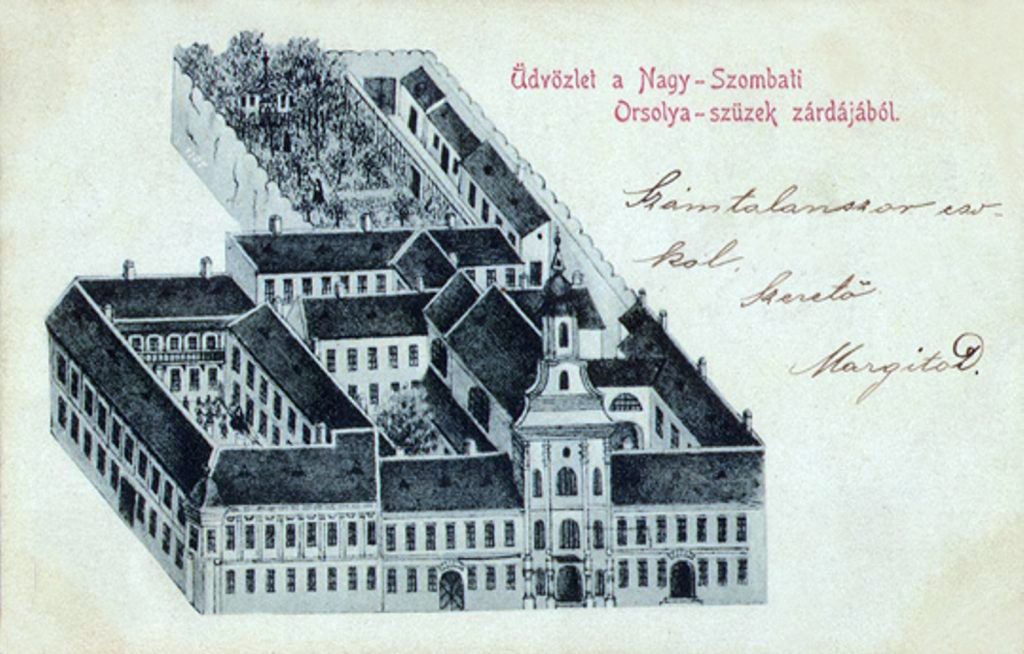 Üdvözlet a Nagy-Szombati
Orsolya-szüzek zárdájából.
Számtalanszor cso-
kol.
Szerető
Margitod.